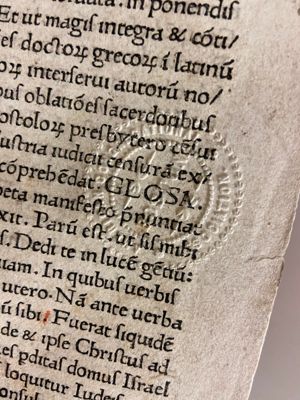 In ponendis
Et ut magis integra & cōti/
es doctorꝭ grecorꝝ ī latinū
orꝝ interserui autorū no/
bus oblatiōes sacerdotibus
postolorꝝ presbytero cēsur
ustria iudicii censurā ex/
cōprehēdat. GLOSA.
peta manifesto pnuntiat
xit. Parū est, ut sis mihi
s. Dedi te in lucē gētiū:
uam. In quibus verbis
utero. Nā ante verba
ū sibi. Fuerat siquidē
de & ipse Christus ad
pditas domus Israel
loquitur Iudeis